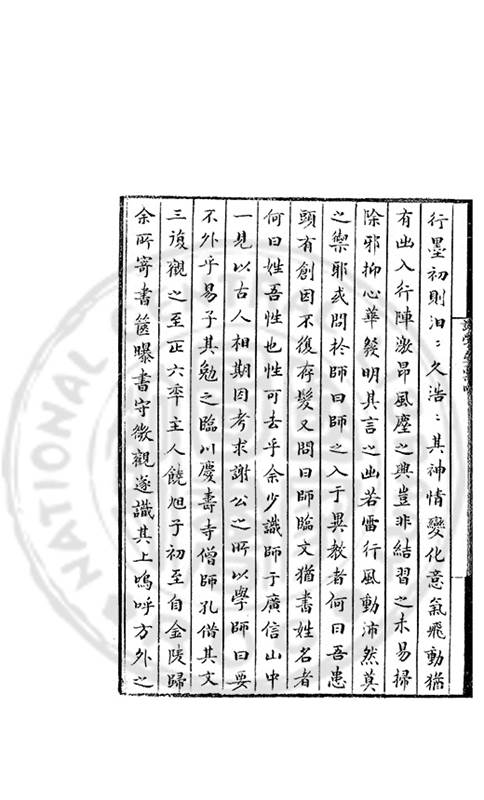 行墨初則汩〻久浩〻其神情變化意氣飛動猶
有出入行陣激昂風塵之興豈非結習之未易掃
除邪抑心華發明其言之出若雷行風動沛然莫
之禦邪或問於師曰師之入于異教者何曰吾患
頭有創因不復存髮又問曰師臨文猶書姓名者
何曰姓吾性也性可去乎余少識師于廣信山中
一見以古人相期因考求謝公之所以學師曰要
不外乎易子其勉之臨川慶壽寺僧師孔偕其文
三復觀之至正六年主人饒旭子初至自金陵歸
余所寄書篋曝書守微觀遂識其上嗚呼方外之
NATIONAL